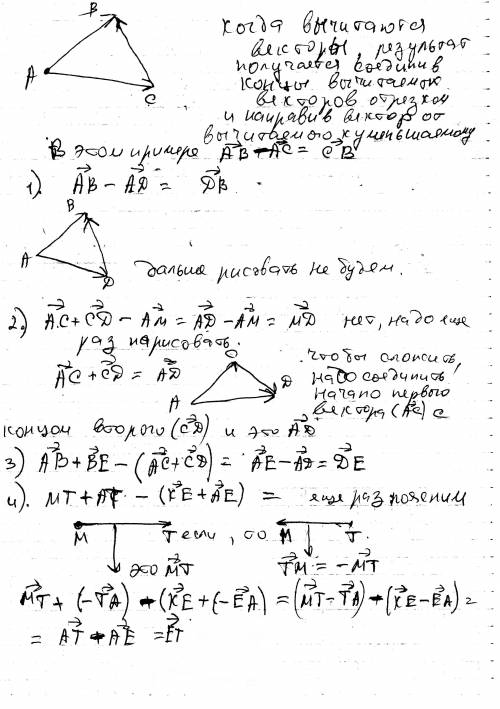 В
A
C
когда вычитаются
векторы, результат
получается соединив
концы вычитаемых
векторов отрезком
и направив вектор от
вычитаемого к уменьшаемому
В этом примере AB - AC = CB
1). AB - AD = DB
B
A
D
дальше рисовать не будем.
2.) AC + CD - AM = AD - AM = MD нет, надо еще
раз нарисовать.
AC + CD = AD
C
D
A
чтобы сложить,
надо соединить
начало первого
вектора (AC) с
концом второго (CD) и это AD
3) AB + BE - (AC + CD) = AE - AD = DE
4). MT + AT - (KE + AE) = еще раз поясним
M T если, то M T.
это MT TM = -MT
MT + (-TA) - (KE + (-EA) = (MT - TA) - (KE - EA) =
= AT - AE = ET